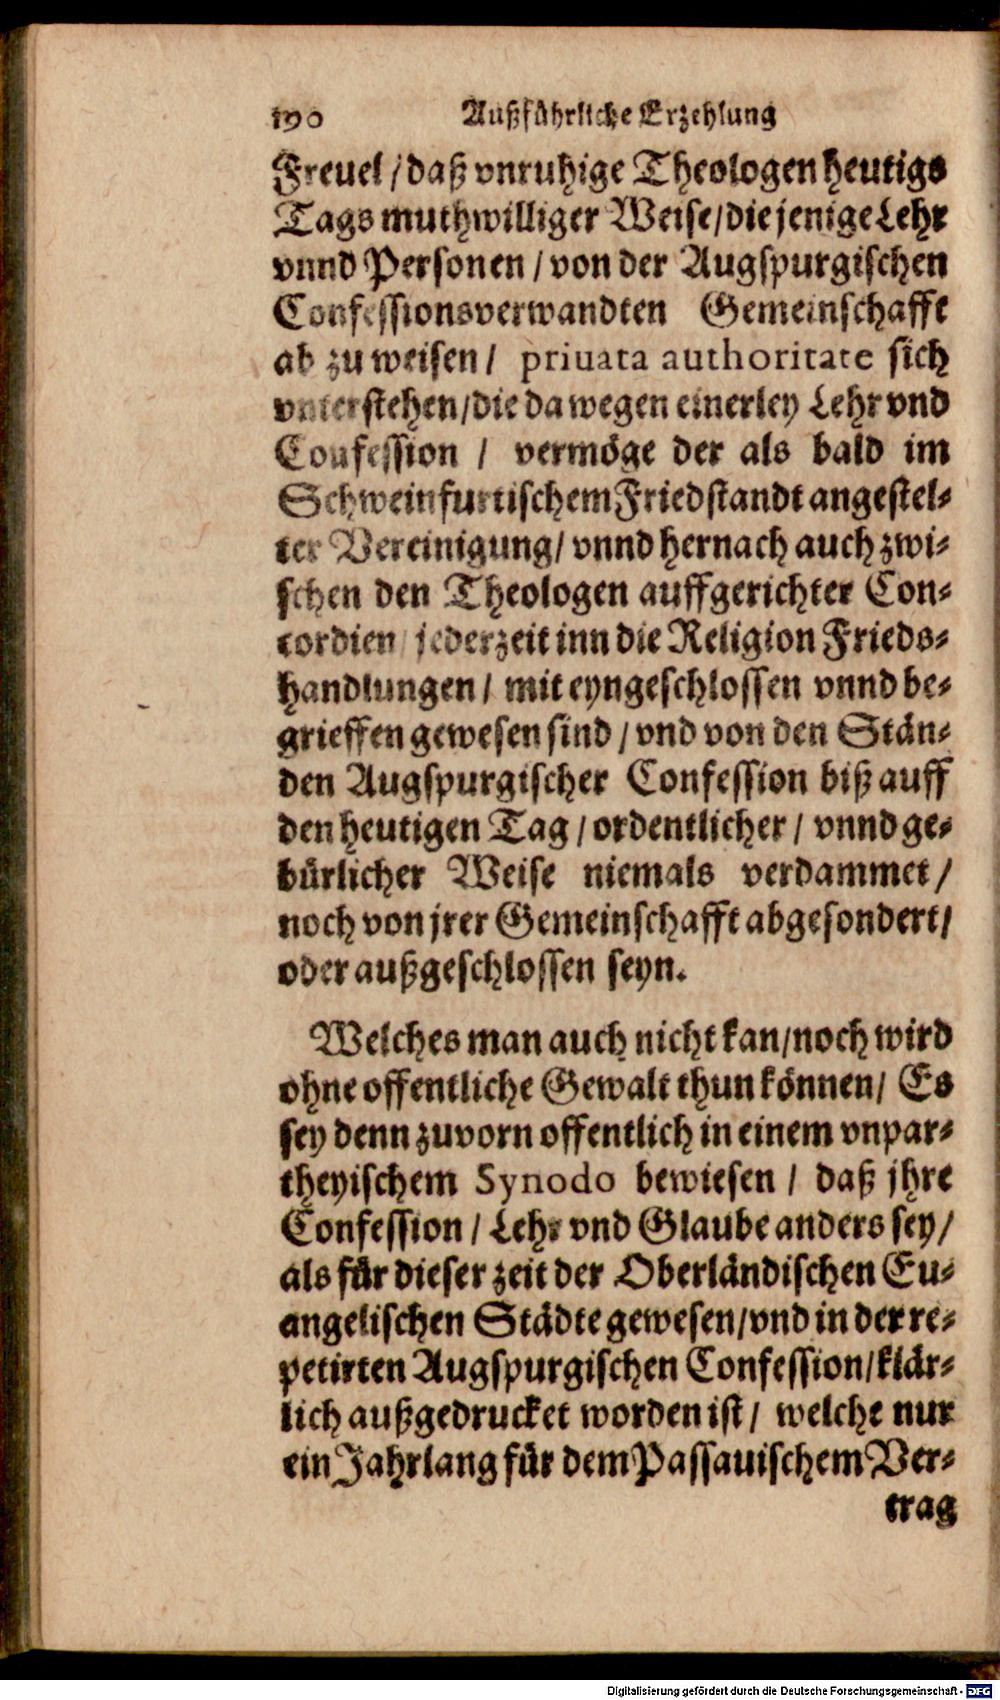 190 Außführliche Erzehlung
Freuel / daß vnruhige Theologen heutigs
Tags muthwilliger Weise / die jenige Lehr
vnnd Personen / von der Augspurgischen
Confessionsverwandten Gemeinschafft
ab zu weisen / priuata authoritate sich
vnterstehen / die da wegen einerley Lehr vnd
Confession / vermöge der als bald im
Schweinfurtischem Friedstandt angestel-
ter Vereinigung / vnnd hernach auch zwi-
schen den Theologen auffgerichter Con-
cordien / jederzeit inn die Religion Frieds-
handlungen / mit eyngeschlossen vnnd be-
grieffen gewesen sind / vnd von den Stän-
den Augspurgischer Confession biß auff
den heutigen Tag / ordentlicher / vnnd ge-
bürlicher Weise niemals verdammet /
noch von jrer Gemeinschafft abgesondert /
oder außgeschlossen seyn.
Welches man auch nicht kan / noch wird
ohne offentliche Gewalt thun können / Es
sey denn zuvorn offentlich in einem vnpar-
theyischem Synodo bewiesen / daß jhre
Confession / Lehr vnd Glaube anders sey /
als für dieser zeit der Oberländischen Eu-
angelischen Städte gewesen / vnd in der re-
petirten Augspurgischen Confession / klär-
lich außgedrucket worden ist / welche nur
ein Jahrlang für dem Passauischem Ver-
trag
Digitalisierung gefördert durch die Deutsche Forschungsgemeinschaft - DFG